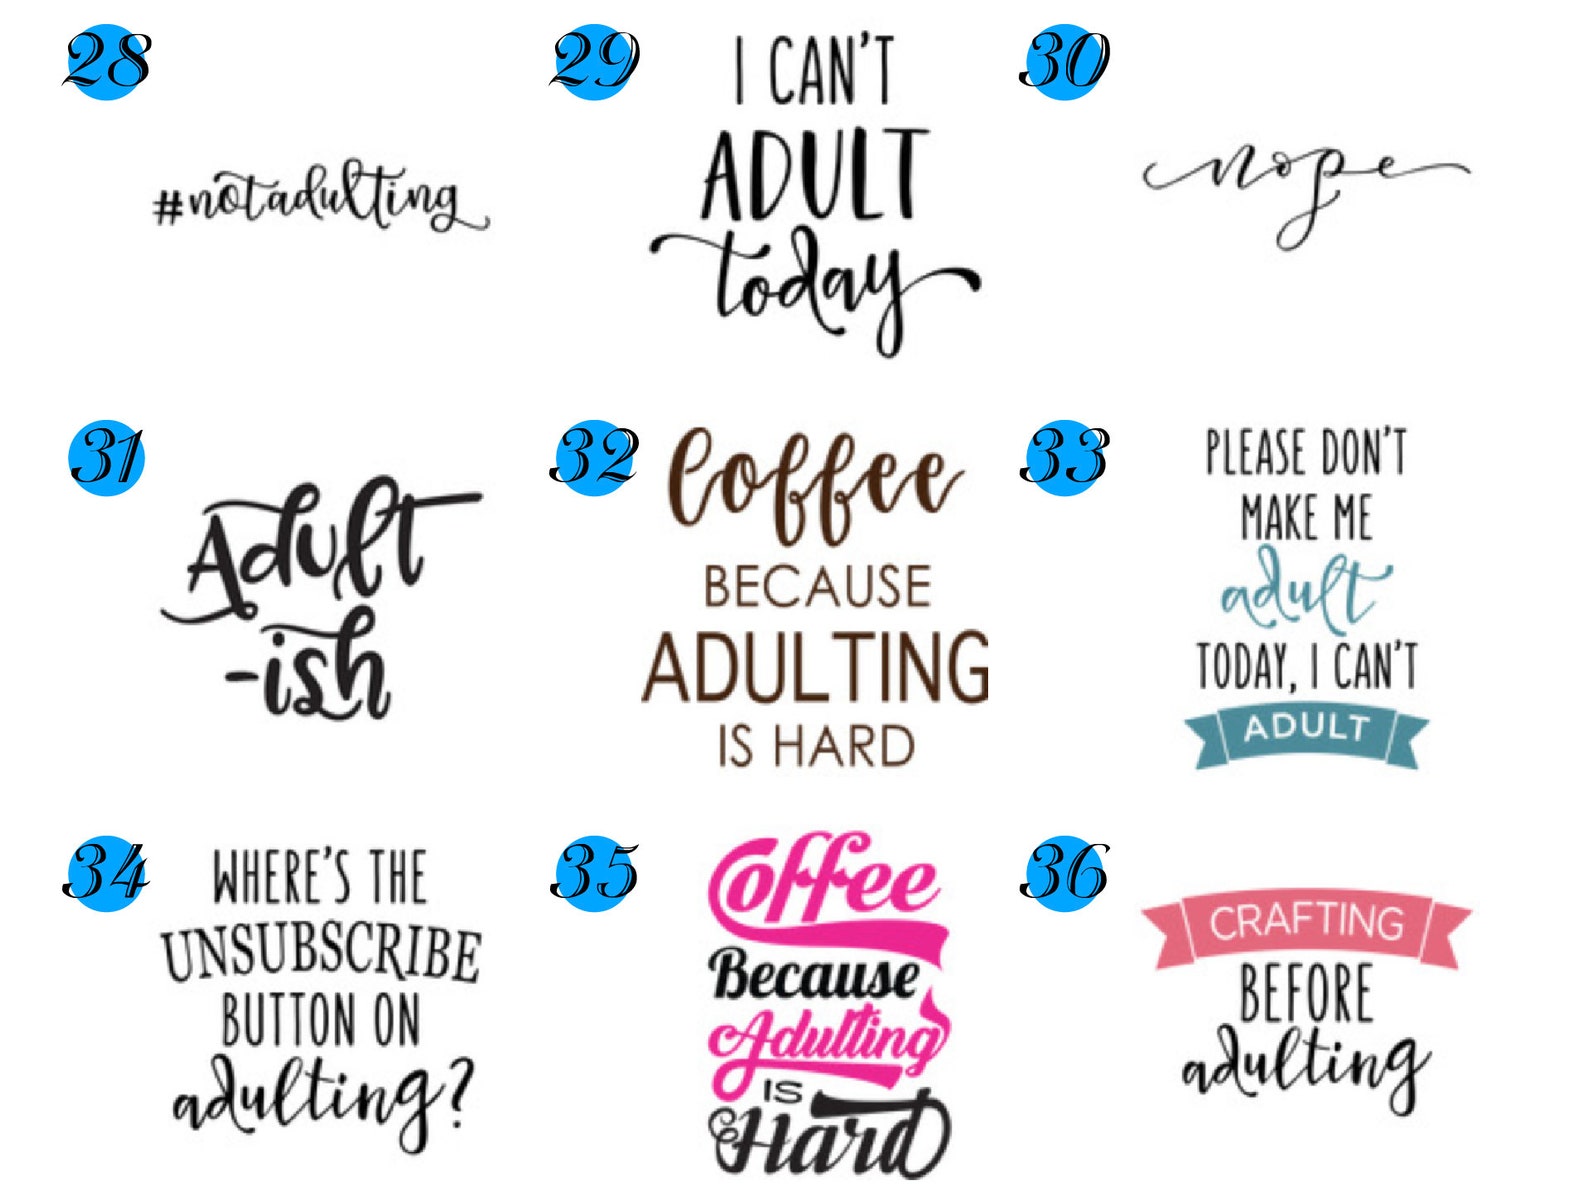 28
#notadulting
29
I CAN'T
ADULT
today
30
nope
31
Adult
-ish
32
Coffee
BECAUSE
ADULTING
IS HARD
33
PLEASE DON'T
MAKE ME
adult
TODAY, I CAN'T
ADULT
34
WHERE'S THE
UNSUBSCRIBE
BUTTON ON
adulting?
35
Coffee
Because
Adulting
IS
Hard
36
CRAFTING
BEFORE
adulting